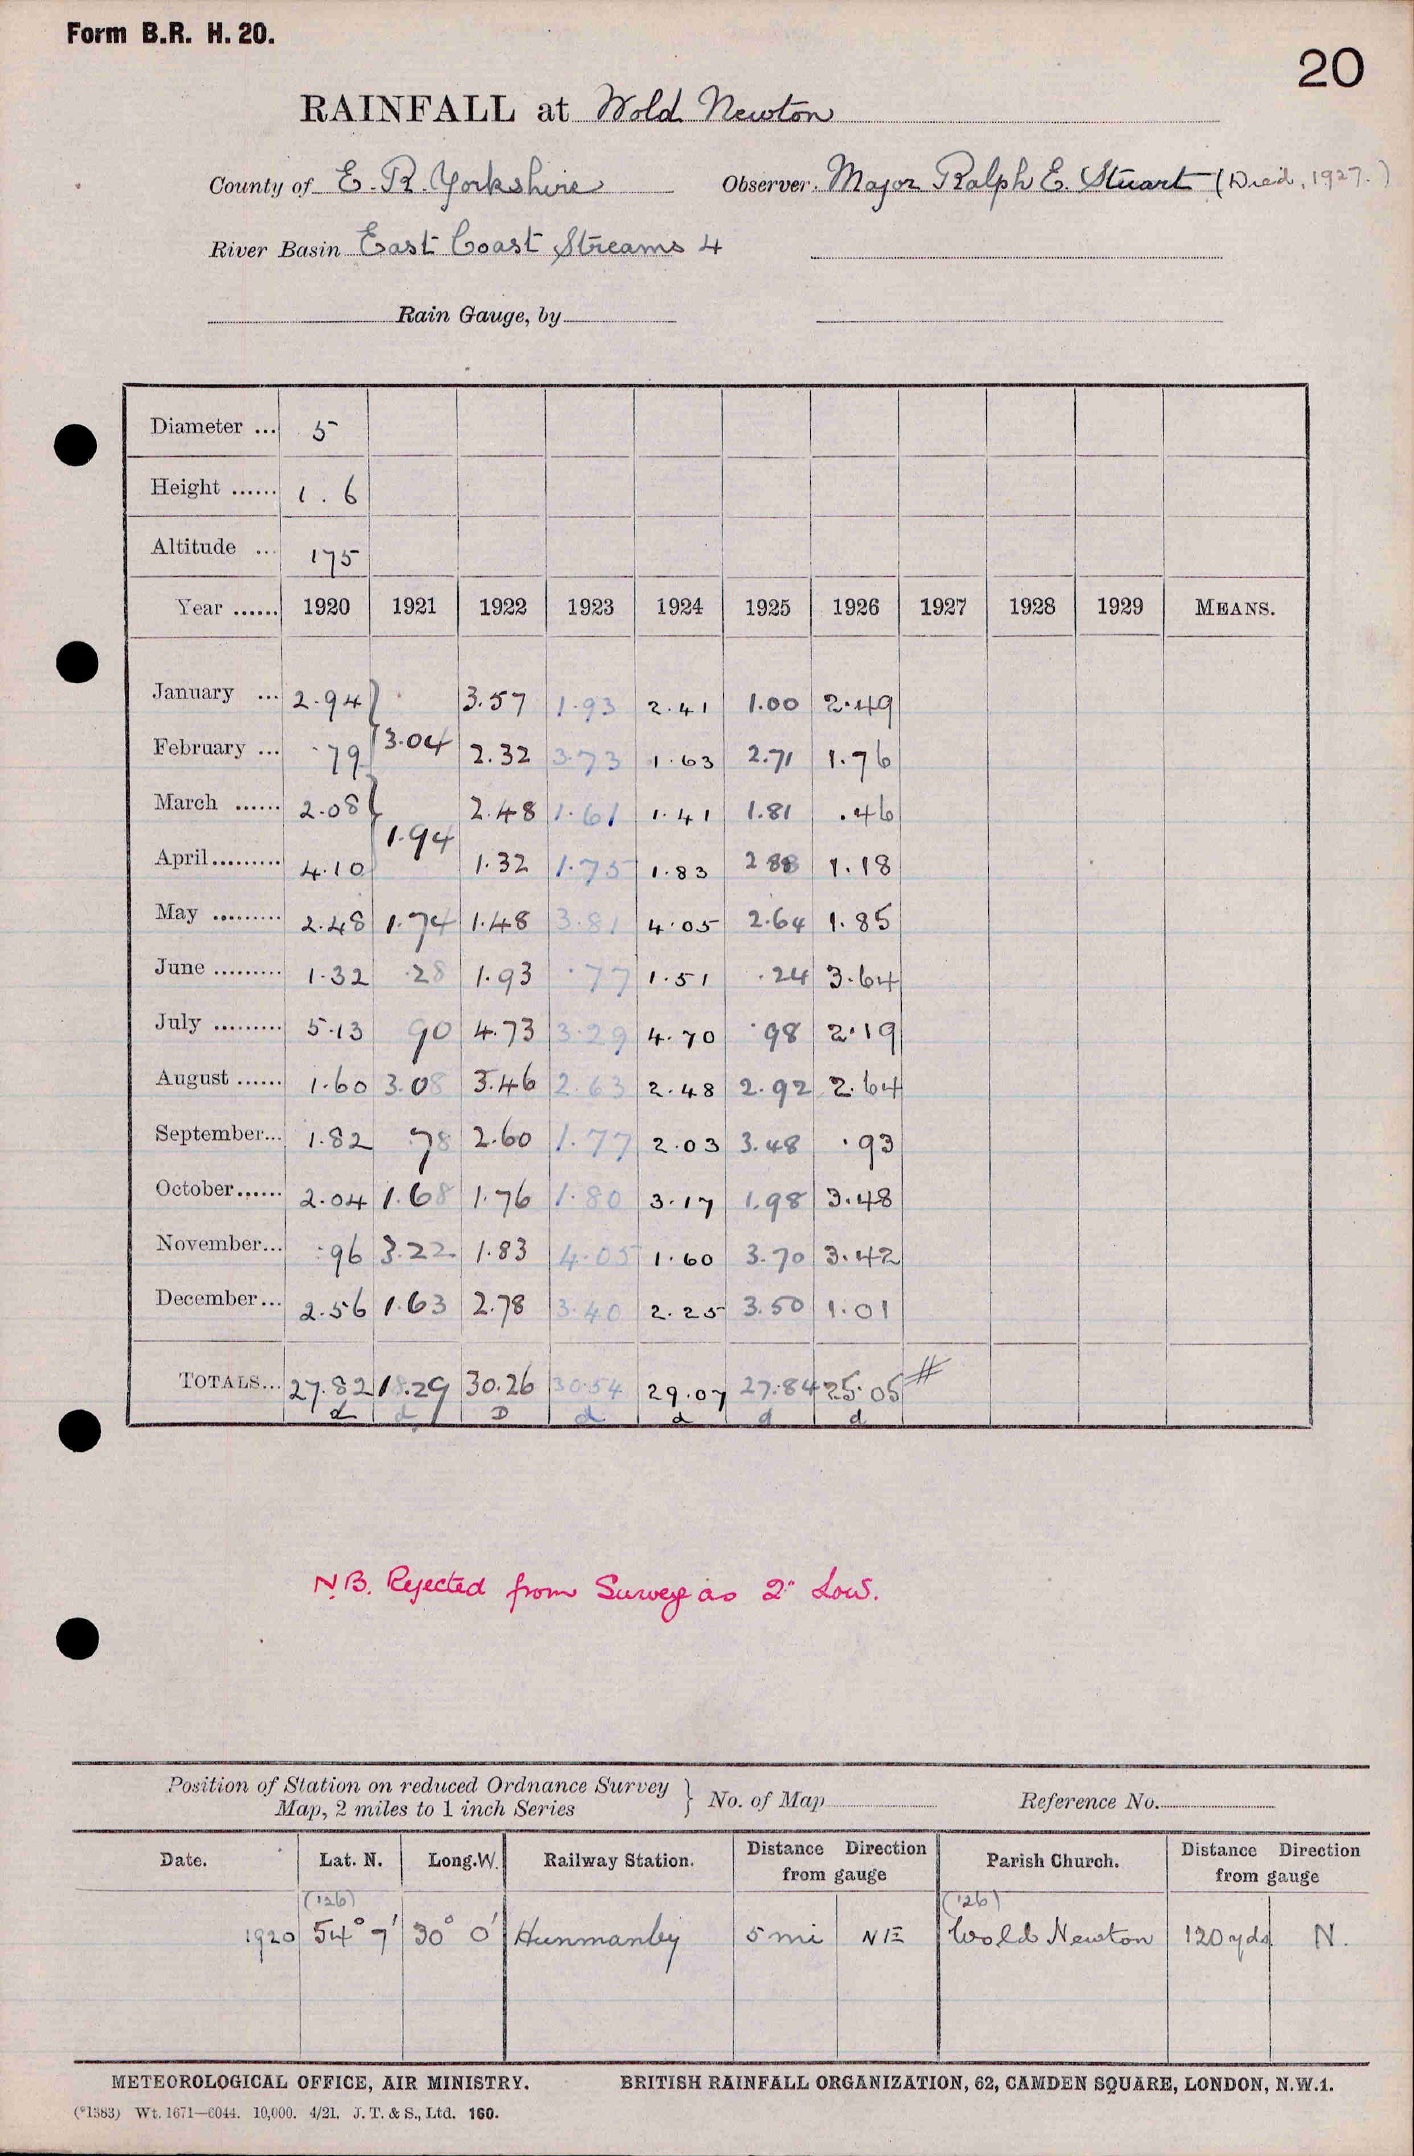 Form B.R. H. 20.
20
RAINFALL at Wold Newton
County of E. R. Yorkshire Observer. Major Ralph E. Stuart (Died, 1927.)
River Basin East Coast Streams 4
Rain Gauge, by
Diameter ... 5
Height ...... 1.6
Altitude ... 175
Year ...... 1920 1921 1922 1923 1924 1925 1926 1927 1928 1929 MEANS.
January ... 2.94 } 3.57 1.93 2.41 1.00 2.49
February ... .79 3.04 2.32 3.73 1.63 2.71 1.76
March ...... 2.08 } 2.48 1.61 1.41 1.81 .46
April......... 4.10 1.94 1.32 1.75 1.83 2 88 1.18
May ......... 2.48 1.74 1.48 3.81 4.05 2.64 1.85
June ......... 1.32 .28 1.93 .77 1.51 .24 3.64
July ......... 5.13 90 4.73 3.29 4.70 .98 2.19
August ...... 1.60 3.08 3.46 2.63 2.48 2.92 2.64
September... 1.82 78 2.60 1.77 2.03 3.48 .93
October...... 2.04 1.68 1.76 1.80 3.17 1.98 3.48
November... .96 3.22 1.83 4.05 1.60 3.70 3.42
December... 2.56 1.63 2.78 3.40 2.25 3.50 1.01
TOTALS... 27.82 18.29 30.26 30.54 29.07 27.84 25.05 #
d d D d d d d
N.B. Rejected from Survey as 2" Low.
Position of Station on reduced Ordnance Survey
Map, 2 miles to 1 inch Series } No. of Map Reference No.
Date. Lat. N. Long.W. Railway Station. Distance Direction from gauge Parish Church. Distance Direction from gauge
('26) ('26)
1920 54° 7' 30° 0' Hunmanby 5 mi NE Wold Newton 120 yds N.
METEOROLOGICAL OFFICE, AIR MINISTRY. BRITISH RAINFALL ORGANIZATION, 62, CAMDEN SQUARE, LONDON, N.W.1.
(*1383) Wt. 1671—6044. 10,000. 4/21. J. T. & S., Ltd. 160.